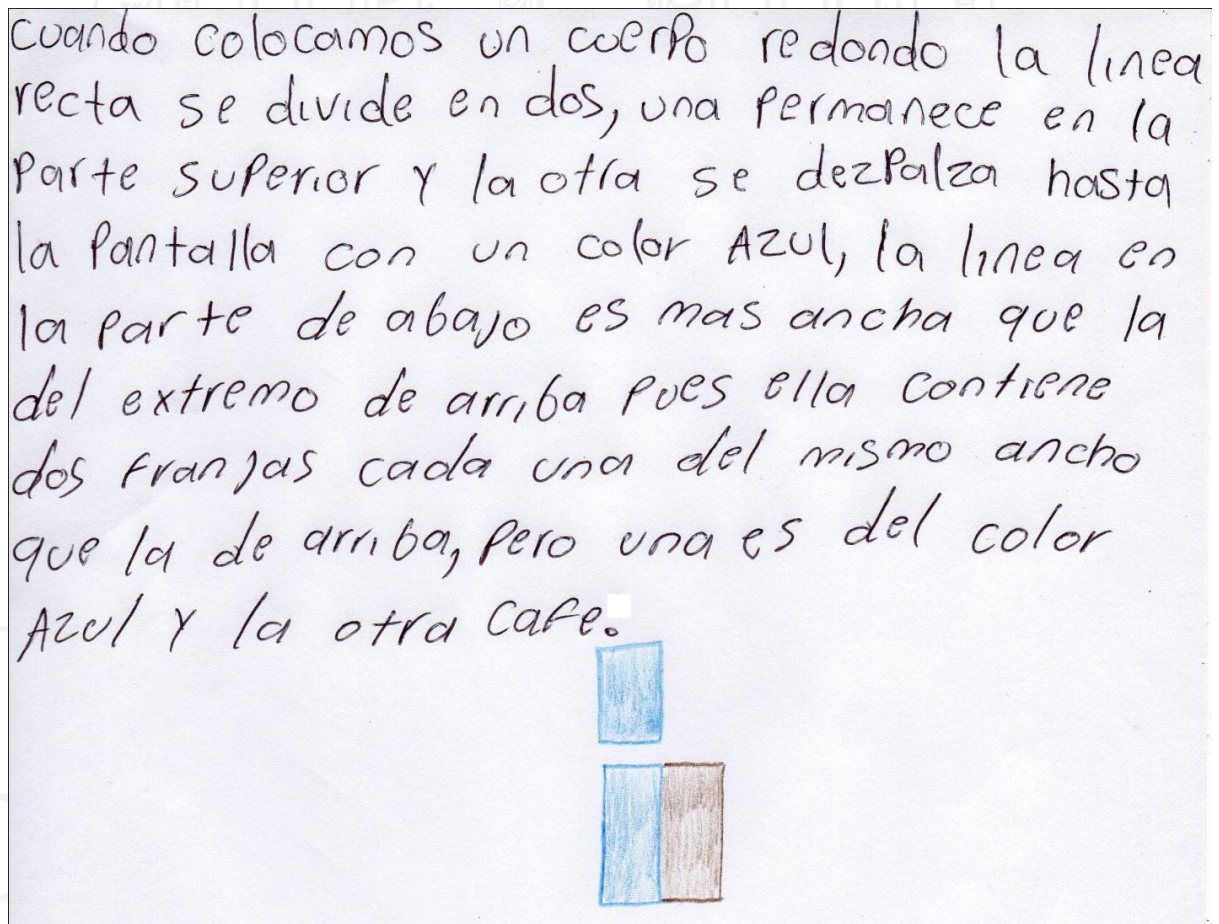 cuando colocamos un cuerpo redondo la linea
recta se divide en dos, una permanece en la
parte superior y la otra se dezpalza hasta
la pantalla con un color AZUL, la linea en
la parte de abajo es mas ancha que la
del extremo de arriba pues ella contiene
dos franjas cada una del mismo ancho
que la de arriba, pero una es del color
AZUL y la otra cafe.